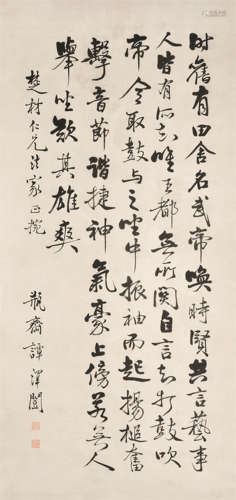 时舊有田舍名武帝喚時賢共言藝事
人皆有所知唯王都無所關自言知打鼓吹
帝令取鼓與之坐中振袖而起揚槌奮
擊音節諧捷神氣豪上傍若無人
舉坐歎其雄爽
楚村仁兄法家正捥
瓶齋譚澤闓